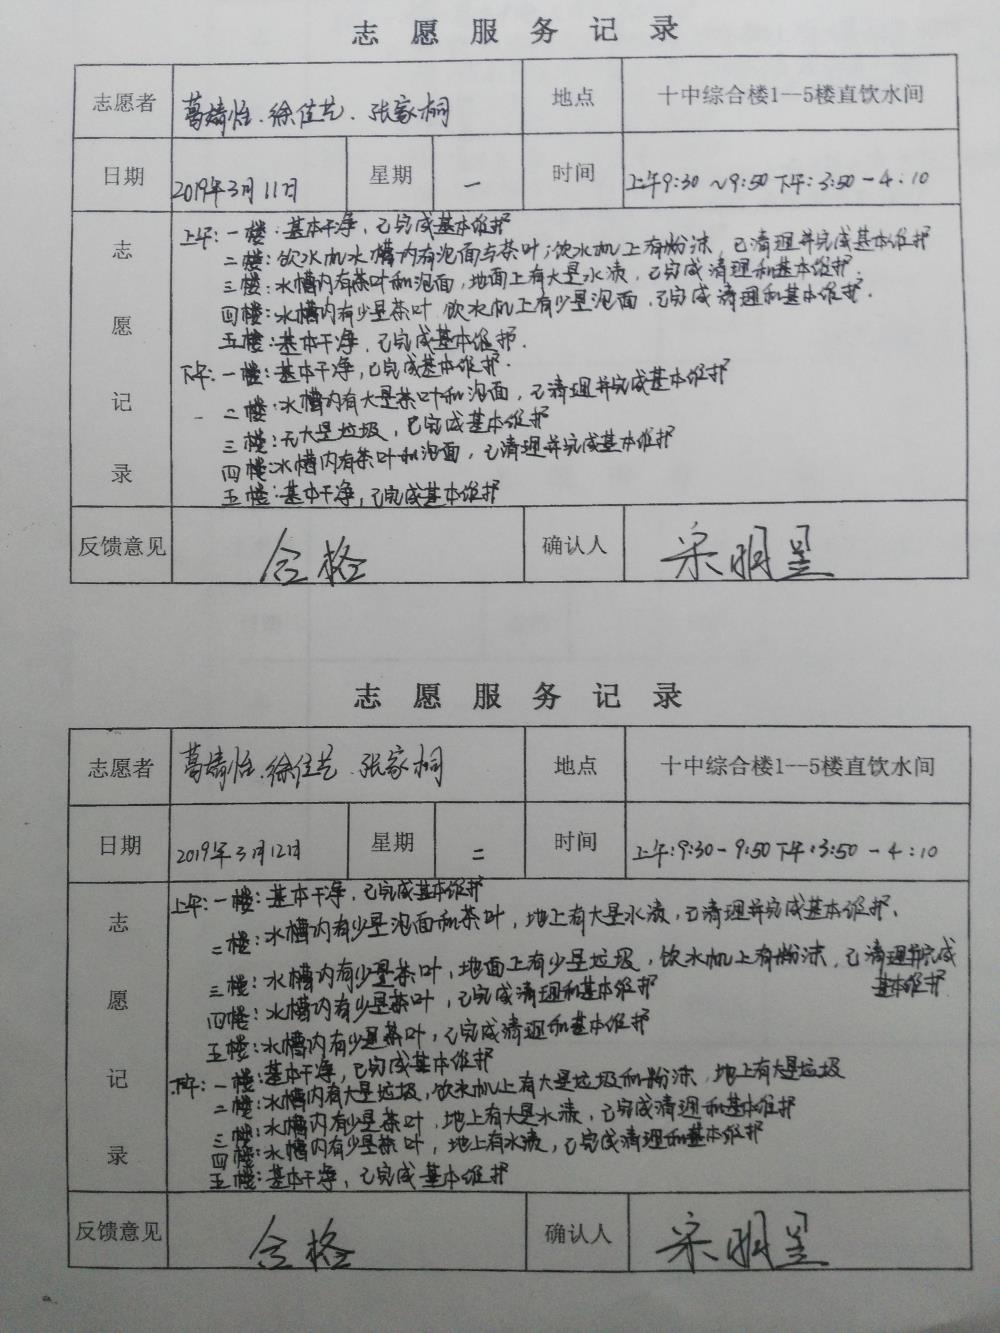 志愿服务记录
志愿者 葛婧怡、徐佳艺、张家桐 地点 十中综合楼1--5楼直饮水间
日期 2019年3月11日 星期 一 时间 上午9:30~9:50 下午:3:50-4:10
志愿记录
上午:一楼:基本干净,已完成基本维护
二楼:饮水机水槽内有泡面与茶叶;饮水机上有粉沫,已清理并完成基本维护
三楼:水槽内有茶叶和泡面,地面上有大量水渍,已完成清理和基本维护.
四楼:水槽内有少量茶叶,饮水机上有少量泡面,已完成清理和基本维护.
五楼:基本干净,已完成基本维护.
下午:一楼:基本干净,已完成基本维护.
二楼:水槽内有大量茶叶和泡面,已清理并完成基本维护
三楼:无大量垃圾,已完成基本维护
四楼:水槽内有茶叶和泡面,已清理并完成基本维护
五楼:基本干净,已完成基本维护
反馈意见 合格 确认人 宋明昱
志愿服务记录
志愿者 葛婧怡、徐佳艺、张家桐 地点 十中综合楼1--5楼直饮水间
日期 2019年3月12日 星期 二 时间 上午:9:30-9:50 下午:3:50-4:10
志愿记录
上午:一楼:基本干净,已完成基本维护
二楼:水槽内有少量泡面和茶叶,地上有大量水渍,已清理并完成基本维护.
三楼:水槽内有少量茶叶,地面上有少量垃圾,饮水机上有粉沫,已清理并完成
基本维护
四楼:水槽内有少量茶叶,已完成清理和基本维护
五楼:水槽内有少量茶叶,已完成清理和基本维护
下午:一楼:基本干净,已完成基本维护
二楼:水槽内有大量垃圾,饮水机上有大量垃圾和粉沫,地上有大量垃圾
三楼:水槽内有少量茶叶,地上有大量水渍,已完成清理和基本维护
四楼:水槽内有少量茶叶,地上有水渍,已完成清理和基本维护
五楼:基本干净,已完成基本维护
反馈意见 合格 确认人 宋明昱